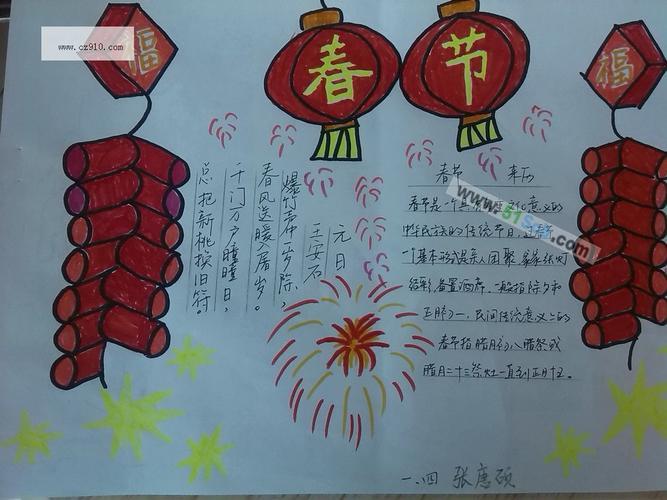 www.cz910.com
福
春
节
福
元日
王安石
爆竹声一岁除，
春风送暖入屠岁。
千门万户瞳瞳日，
总把新桃换旧符。
春节 来历
春节是个 意义的
中华民族的传统节日，这
个基本形式是亲人团聚 张灯
结彩备置酒席，一般指除夕和
正月初一，民间传统意义上的
春节指腊月初八腊祭或
腊月二十三祭灶一直到正月十五。
一、四 张惠硕